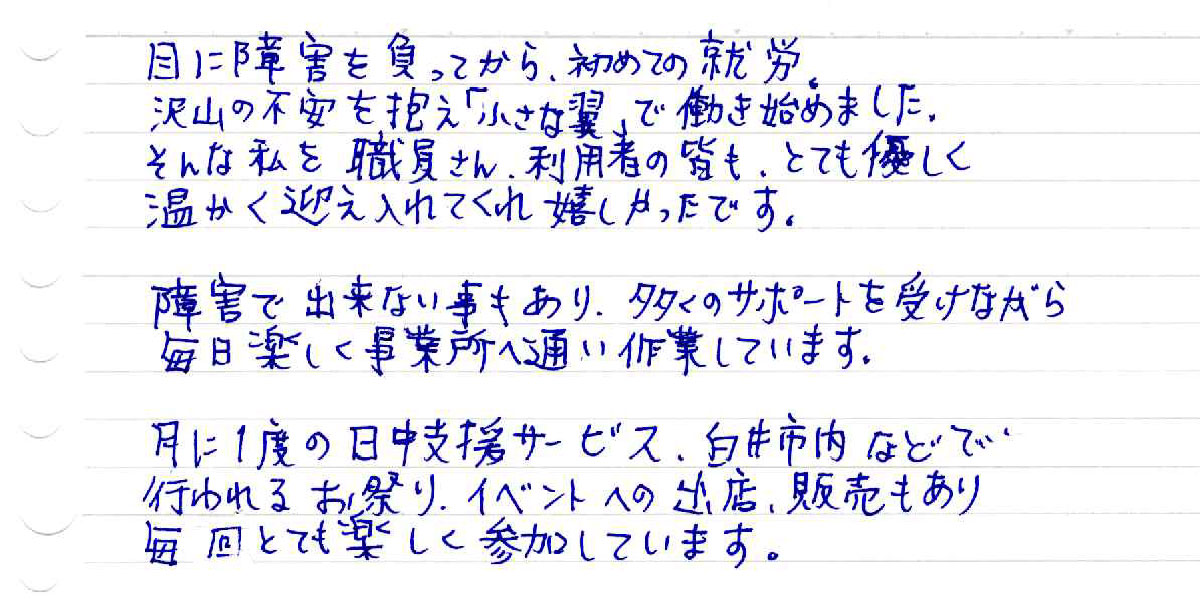 目に障害を負ってから、初めての就労。
沢山の不安を抱え「小さな翼」で働き始めました。
そんな私を職員さん、利用者の皆も、とても優しく
温かく迎え入れてくれ嬉しかったです。
障害で出来ない事もあり、多くのサポートを受けながら
毎日楽しく事業所へ通い作業しています。
月に1度の日中支援サービス、白井市内などで
行われるお祭り、イベントへの出店、販売もあり
毎回とても楽しく参加しています。